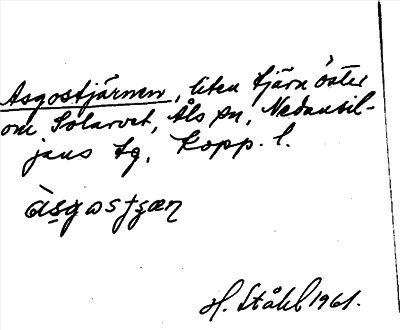 Asgostjärnen, liten tjärn öster
om Solarvet, Åls sn, Nedansil-
jans tg, Kopp. l.
àsgɷstʂæn
H. Ståhl 1961.